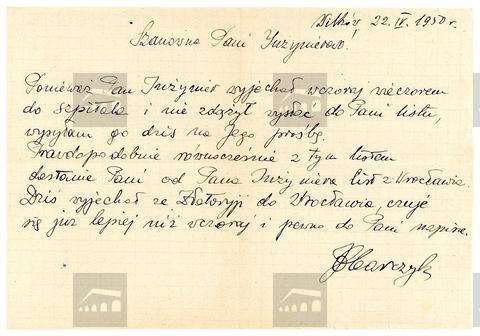 Wilków 22. IV. 1950 r.
Szanowna Pani Inżynierowo!
Ponieważ Pan Inżynier wyjechał wczoraj wieczorem
do szpitala i nie zdążył wysłać do Pani listu,
wysyłam go dziś na Jego prośbę.
Prawdopodobnie równocześnie z tym listem
dostanie Pani od Pana Inżyniera list z Wrocławia.
Dziś wyjechał ze Złotoryji do Wrocławia, czuje
się już lepiej niż wczoraj i pewno do Pani napisze.